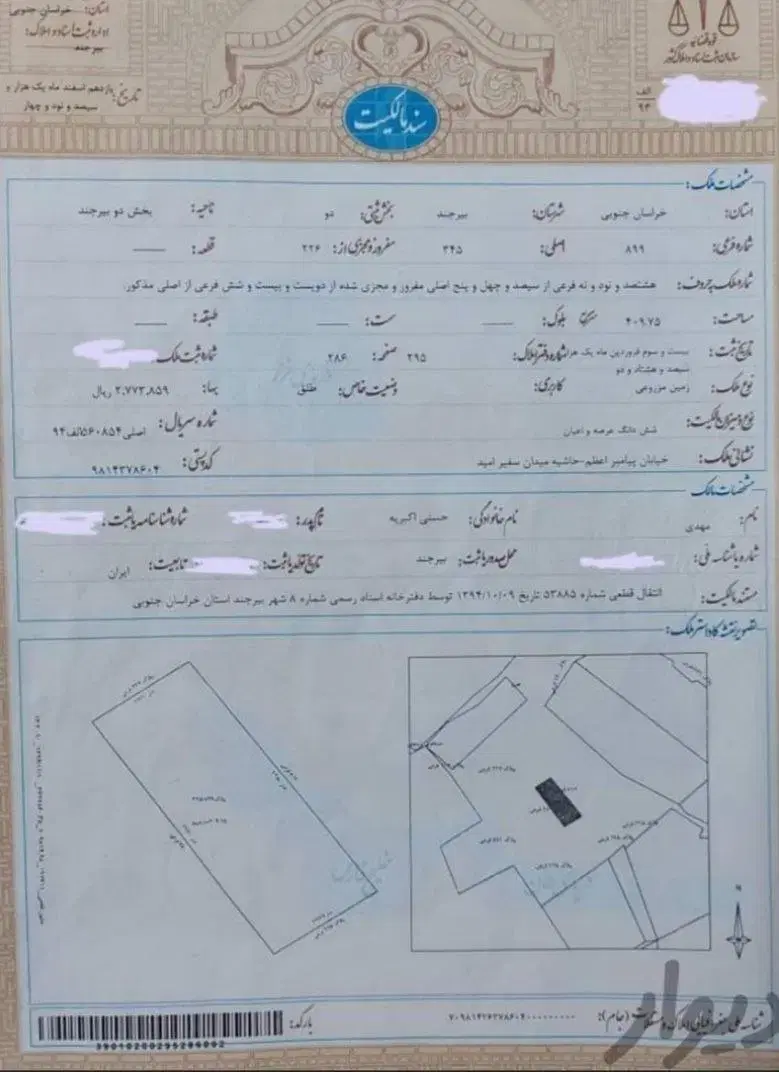 استان: خراسان جنوبی
اداره ثبت اسناد و املاک:
بیرجند
تاریخ: یازدهم اسفند ماه یک هزار و
سیصد و نود و چهار
قوه قضائیه
سازمان ثبت اسناد و املاک کشور
الف
۹۴
سند مالکیت
مشخصات ملک:
استان: خراسان جنوبی شهرستان: بیرجند بخش ثبتی: دو ناحیه: بخش دو بیرجند
شماره فرعی: ۸۹۹ اصلی: ۳۴۵ مفروز و مجزی از: ۲۲۶ قطعه:
شماره ملک به حروف: هشتصد و نود و نه فرعی از سیصد و چهل و پنج اصلی مفروز و مجزی شده از دویست و بیست و شش فرعی از اصلی مذکور.
مساحت: ۴۰۹.۷۵ مترمربع بلوک: سمت: طبقه:
تاریخ ثبت: بیست و سوم فروردین ماه یک هزار سیصد و هشتاد و دو شماره دفتر املاک: ۲۹۵ صفحه: ۲۸۶ شماره ثبت ملک:
نوع ملک: زمین مزروعی کاربری: وضعیت خاص: مطلق بها: ۲,۷۷۳,۸۵۹ ریال
نوع و میزان مالکیت: شش دانگ عرصه و اعیان شماره سریال: اصلی۵۶۰۸۵۴الف۹۴
نشانی ملک: خیابان پیامبر اعظم-حاشیه میدان سفیر امید کد پستی: ۹۸۱۴۳۷۸۶۰۴
مشخصات مالک
نام: مهدی نام خانوادگی: حسنی اکبریه نام پدر: شماره شناسنامه یا ثبت:
شماره یا شناسه ملی: محل صدور یا ثبت: بیرجند تاریخ تولد یا ثبت: تابعیت: ایران
مستند مالکیت: انتقال قطعی شماره ۵۳۸۸۵ تاریخ ۱۳۹۴/۱۰/۰۹ توسط دفترخانه اسناد رسمی شماره ۸ شهر بیرجند استان خراسان جنوبی
تصویر نقشه کاداستر ملک:
N
شناسه ملی جغرافیایی املاک و مستغلات (جام):
بارکد:
39010200295286092
دیوار